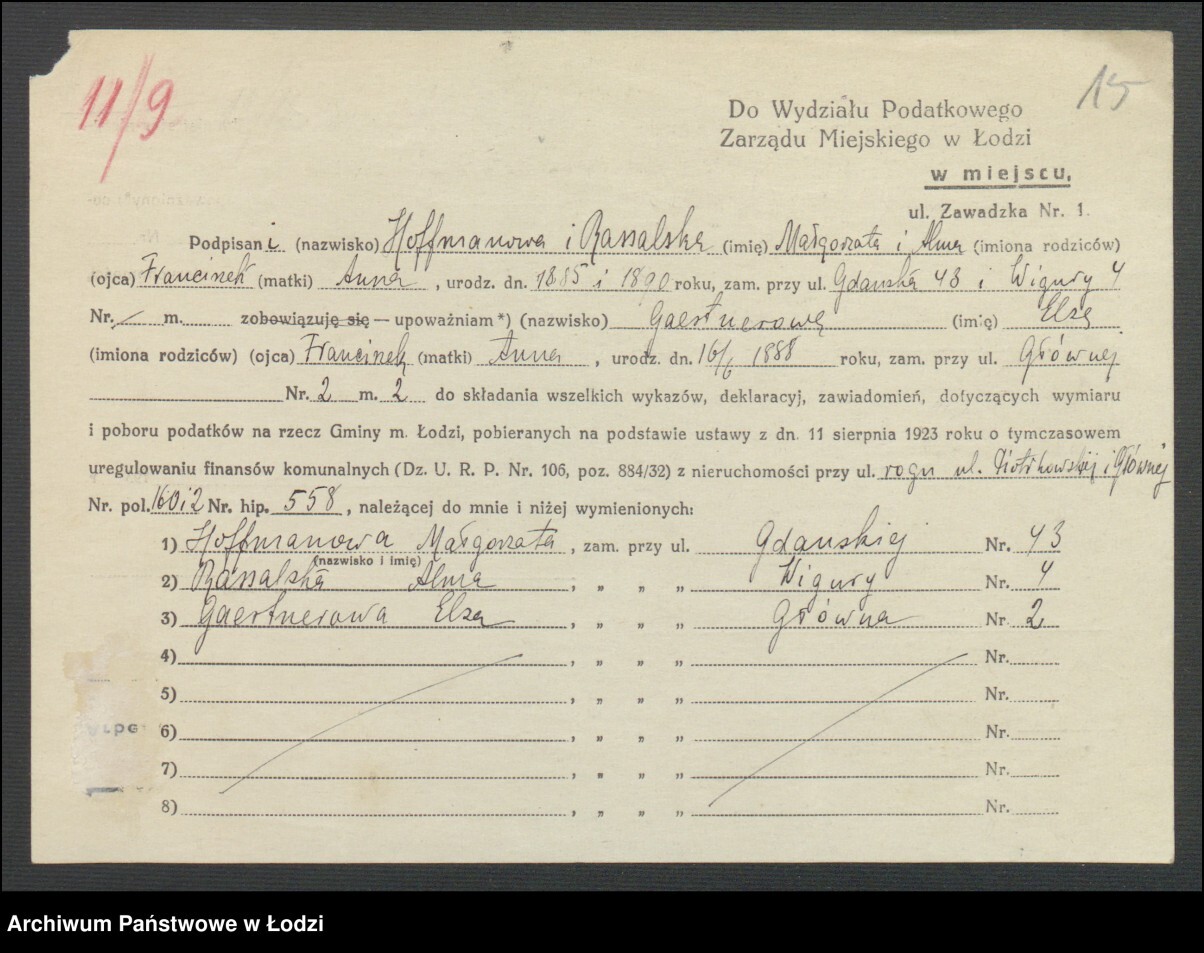 11/9
15
Do Wydziału Podatkowego
Zarządu Miejskiego w Łodzi
w miejscu,
ul. Zawadzka Nr. 1.
Podpisani (nazwisko) Hoffmanowa i Rassalska (imię) Małgorzata i Alma (imiona rodziców)
(ojca) Francinek (matki) Anna, urodz. dn. 1885 i 1890 roku, zam. przy ul. Gdańska 43 i Wigury 4
Nr. / m. zobowiązuję się — upoważniam *) (nazwisko) Gaestnerową (imię) Elzę
(imiona rodziców) (ojca) Francinek (matki) Anna, urodz. dn. 16/6 1888 roku, zam. przy ul. Głównej
Nr. 2 m. 2 do składania wszelkich wykazów, deklaracyj, zawiadomień, dotyczących wymiaru
i poboru podatków na rzecz Gminy m. Łodzi, pobieranych na podstawie ustawy z dn. 11 sierpnia 1923 roku o tymczasowem
uregulowaniu finansów komunalnych (Dz. U. R. P. Nr. 106, poz. 884/32) z nieruchomości przy ul. rogu ul. Piotrkowskiej i Głównej
Nr. pol. 160 i 2 Nr. hip. 558, należącej do mnie i niżej wymienionych:
1) Hoffmanowa Małgorzata, zam. przy ul. Gdańskiej Nr. 43
(nazwisko i imię)
2) Rassalska Alma, „ „ „ Wigury Nr. 4
3) Gaestnerowa Elza, „ „ „ Główna Nr. 2
4) , „ „ „ Nr.
5) , „ „ „ Nr.
6) , „ „ „ Nr.
7) , „ „ „ Nr.
8) , „ „ „ Nr.
Archiwum Państwowe w Łodzi